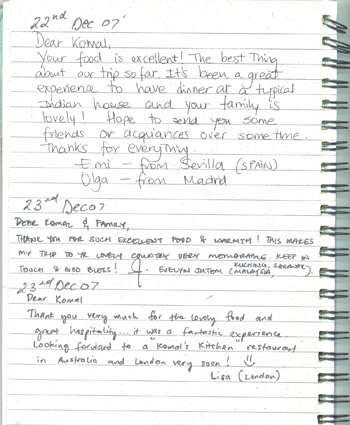 22nd Dec 07'
Dear Komal,
Your food is excellent! The best Thing
about our trip so far. It's been a great
experience to have dinner at a typical
Indian house and your family is
lovely! Hope to send you some
friends or acquiances over some time.
Thanks for everything.
Emi - from Sevilla (SPAIN)
Olga - from Madrid
23rd Dec 07
DEAR KOMAL & FAMILY,
THANK YOU FOR SUCH EXCELLENT FOOD & WARMTH! THIS MAKES
MY TRIP TO YR LOVELY COUNTRY VERY MEMORABLE. KEEP IN
TOUCH & GOD BLESS! EVELYN (MALAYSIA, KUCHING, SARAWAK).
23rd Dec 07
Dear Komal
Thank you very much for the lovely food and
great hospitality... it was a fantastic experience.
Looking forward to a "Komal's Kitchen" restaurant
in Australia and London very soon!
Lisa (London)